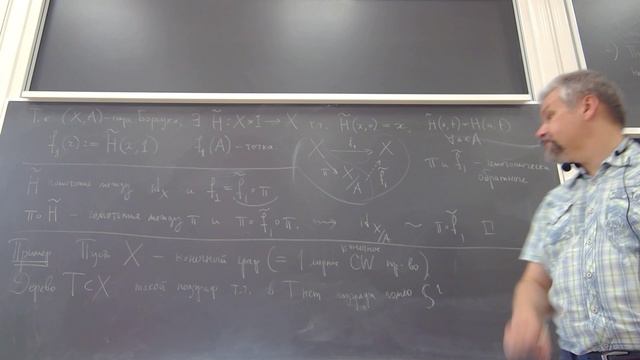 Т.к. (X,A) - пара Борсука, ∃ H̃: X×I → X т.ч. H̃(x,0) = x, H̃(a,t) = H(a,t) ∀a∈A
f₁(x) := H̃(x,1) f₁(A) - точка.
X f₁ X
π X/A f̃₁
π и f̃₁ - гомотопически обратные
H̃ гомотопия между id_X и f₁ = f̃₁∘π
π∘H̃ - гомотопия между π и π∘f̃₁∘π. ⟹ id_X/A ~ π∘f̃₁ □
Пример Пусть X - конечный граф (= 1 мерное конечное CW пр-во)
Дерево T⊂X такой подграф т.ч. в T нет подграфа гомео S¹